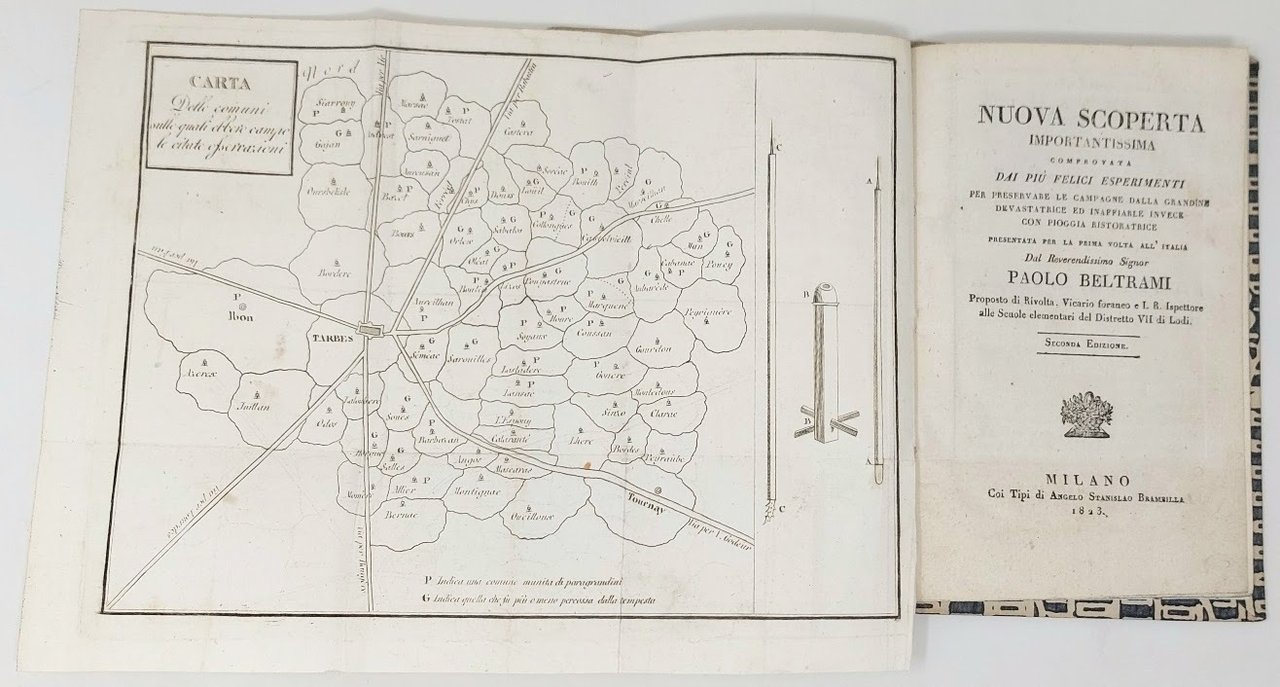 CARTA
Delle comuni
sulle quali ebbero campo
le citate osservazioni
Nord
Siarrouy
P
G
Gajan
Oursbelille
Marsac
Tostat
P
Sarniguet
Castera
Aureusan
Bazet
P
Bours
Bordere
P
Ibon
TARBES
Azereix
Juillan
Odos
Aureilhan
P
Orleix
G
Sabalos
G
Collongues
P
G
Castelvieilh
G
Chelle
G
Bouilh
P
Souyaux
P
Mouré
P
Coussan
P
Marquerie
G
Gourdon
Peyriguère
Cabanac
P
Pouey
G
Semeac
G
Sarouilles
G
Laslades
P
Lansac
P
Goncre
P
L'Espouy
Calavanté
Lhere
Sinzo
Clarac
Bordes
Peyraube
Soues
G
Barbazan
P
Angos
Mascaras
Salles
G
Allier
P
Montignac
Bernac
Oueilloux
Tournay
P Indica una comune munita di paragrandini
G Indica quella che fù più o meno percossa dalla tempesta
C
A
B
B
A
C
NUOVA SCOPERTA
IMPORTANTISSIMA
COMPROVATA
DAI PIÙ FELICI ESPERIMENTI
PER PRESERVARE LE CAMPAGNE DALLA GRANDINE
DEVASTATRICE ED INAFFIARLE INVECE
CON PIOGGIA RISTORATRICE
PRESENTATA PER LA PRIMA VOLTA ALL' ITALIA
Dal Reverendissimo Signor
PAOLO BELTRAMI
Proposto di Rivolta, Vicario foraneo e I. R. Ispettore
alle Scuole elementari del Distretto VII di Lodi.
SECONDA EDIZIONE.
MILANO
Coi Tipi di ANGELO STANISLAO BRAMBILLA
1823.